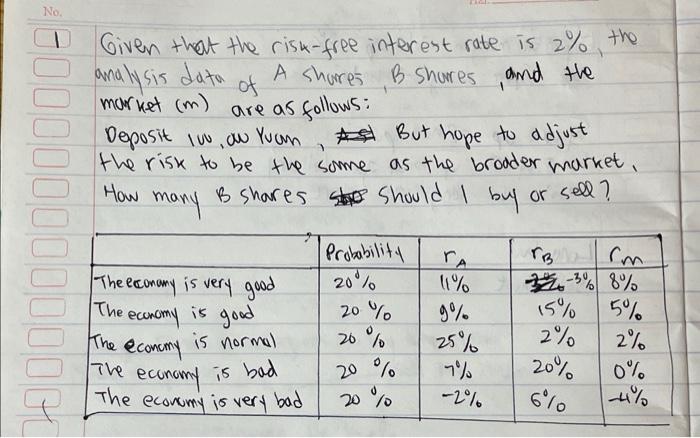 No.
1 Given that the risk-free interest rate is 2%, the
analysis data of A shares, B shares, and the
market (m) are as follows:
Deposit 100,00 Yuan, But hope to adjust
the risk to be the same as the broader market.
How many B shares should I buy or sell?
Probability rA rB rm
The economy is very good 20% 11% -3% 8%
The economy is good 20% 9% 15% 5%
The economy is normal 20% 25% 2% 2%
The economy is bad 20% 7% 20% 0%
The economy is very bad 20% -2% 6% -4%